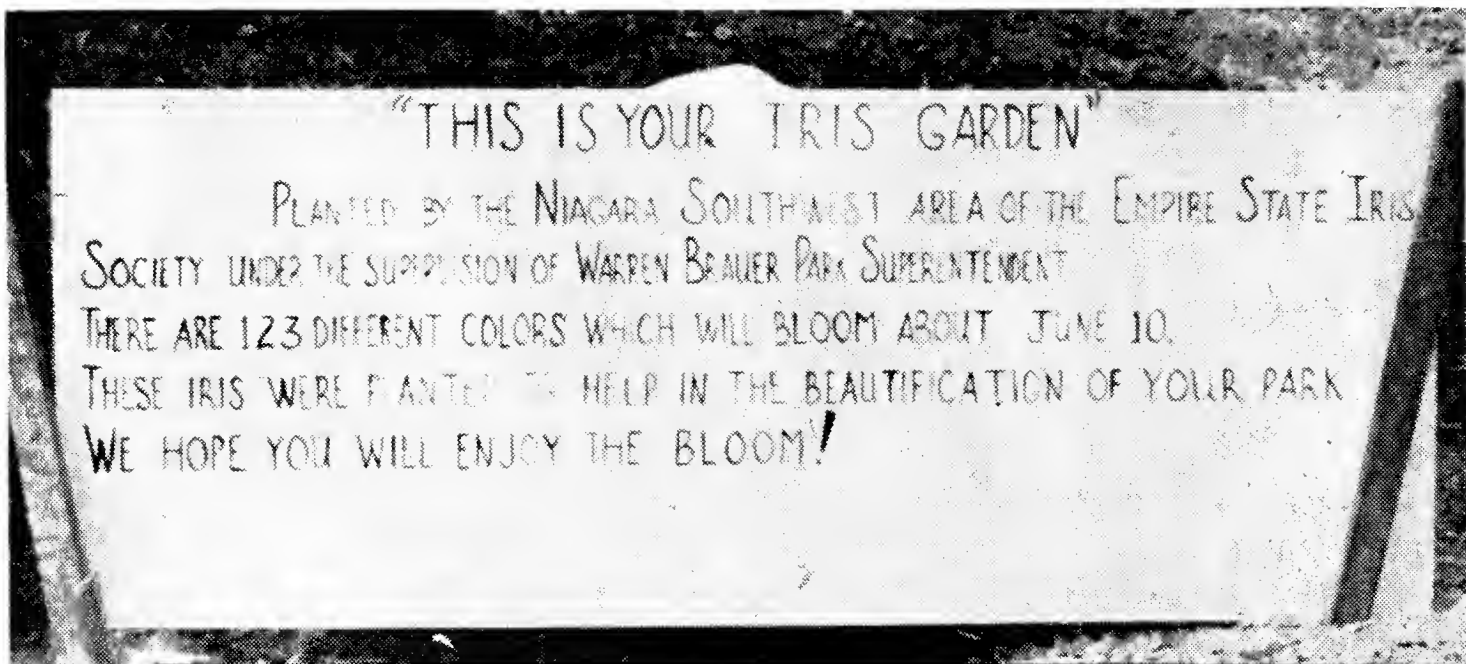 "THIS IS YOUR IRIS GARDEN"
PLANTED BY THE NIAGARA SOUTHWEST AREA OF THE EMPIRE STATE IRIS
SOCIETY UNDER THE OF WARREN BRAUER PARK SUPERENTENDENT
THERE ARE 123 DIFFERENT COLORS WHICH WILL BLOOM ABOUT JUNE 10.
THESE IRIS WERE PLANTED TO HELP IN THE BEAUTIFICATION OF YOUR PARK
WE HOPE YOU WILL ENJOY THE BLOOM!